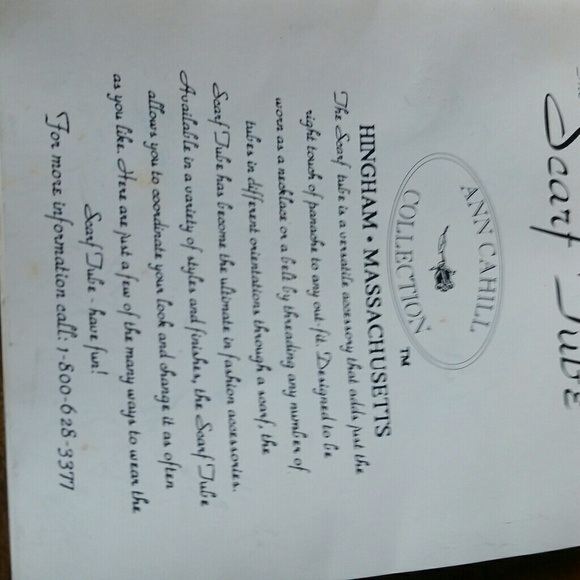 Scarf Tube
ANN CAHILL
COLLECTION
TM
HINGHAM • MASSACHUSETTS
The Scarf tube is a versatile accessory that adds just the
right touch of panache to any out-fit. Designed to be
worn as a necklace or a belt by threading any number of
tubes in different orientations through a scarf, the
Scarf Tube has become the ultimate in fashion accessories.
Available in a variety of styles and finishes, the Scarf Tube
allows you to coordinate your look and change it as often
as you like. Here are just a few of the many ways to wear the
Scarf Tube - have fun!
For more information call: 1-800-628-3377